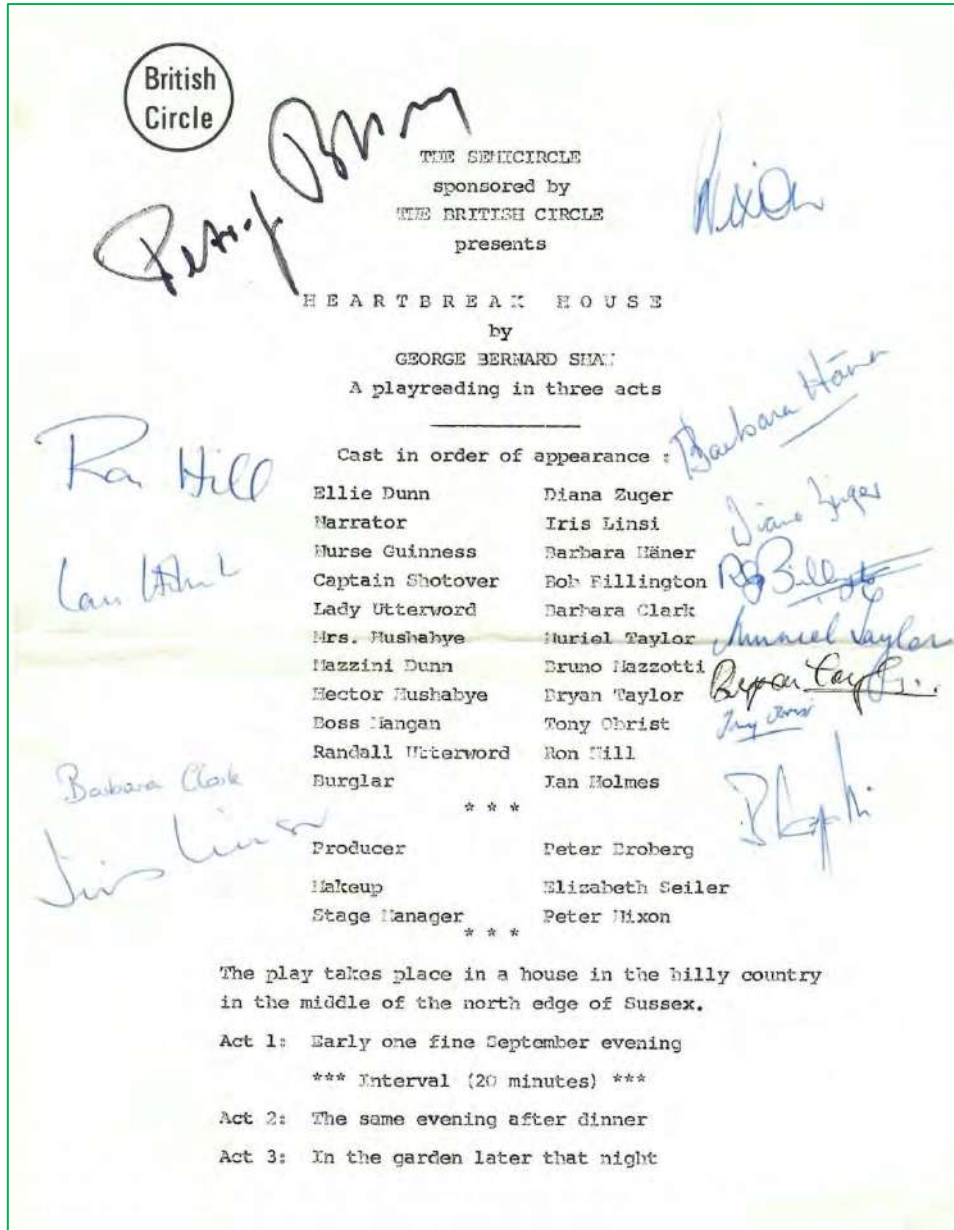 British
Circle
THE SEMICIRCLE
sponsored by
THE BRITISH CIRCLE
presents
Nixon
HEARTBREAK HOUSE
by
GEORGE BERNARD SHAW
A playreading in three acts
Barbara Häner
Ron Hill
Cast in order of appearance :
Ellie Dunn Diana Zuger
Narrator Iris Linsi
Nurse Guinness Barbara Häner
Captain Shotover Bob Billington
Lady Utterword Barbara Clark
Mrs. Hushabye Muriel Taylor Muriel Taylor
Mazzini Dunn Bruno Mazzotti
Hector Hushabye Bryan Taylor Bryan Taylor
Boss Mangan Tony Obrist
Randall Utterword Ron Hill
Burglar Ian Holmes
Barbara Clark
* * *
Producer Peter Broberg
Makeup Elizabeth Seiler
Stage Manager Peter Nixon
* * *
The play takes place in a house in the hilly country
in the middle of the north edge of Sussex.
Act 1: Early one fine September evening
*** Interval (20 minutes) ***
Act 2: The same evening after dinner
Act 3: In the garden later that night